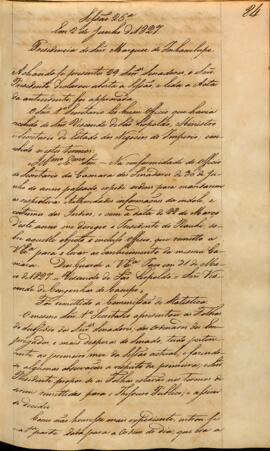 84
Sessão 25ª
Em 2 de Junho de 1827
Presidencia do Snr. Marquez de Inhambupe.
Achando-se presentes 29 Snrs. Senadores, o Snr.
Presidente declarou aberta a Sessão, e lida a Acta
da antecedente foi approvada.
O Snr. 1º Secretario leo hum Officio que havia
recebido do Snr. Visconde de São Leopoldo, Ministro
e Secretario de Estado dos Negocios do Imperio, con-
cebido nestes termos:
Illmo. e Exmo. Snr. Na conformidade do Officio
da Secretaria da Camara dos Senadores de 26 de Ju-
nho do anno passado expedi ordens para mandarem
as respectivas informações da indole, e
costumes dos Indios, e com a data de 22 de Março
deste anno me dirigio o Presidente do
bre aquelle objecto o incluso Officio, que remetto a
V. Exa. para o levar ao conhecimento da mesma Ca-
mara. Deos Guarde a V. Exa. Paço em 31 de Maio
de 1827. Visconde de São Leopoldo. Snr. Vis-
conde de Congonhas do Campo.
Foi remettido á Commissão de Estatistica.
O mesmo Snr. 1º Secretario apresentou as Folhas
do subsidio dos Snrs. Senadores, dos ordenados dos Em-
pregados, e mais despezas do Senado, tudo perten-
cente ao primeiro mez da Sessão actual, e fazendo-
se algumas observações a respeito da primeira, o Snr.
Presidente propoz se as Folhas estavão nos termos de
serem remettidas para o Thesouro Publico; e assim se
decidio.
Como não houvesse mais expediente, entrou-se
na 1ª parte da Ordem do dia, que era a